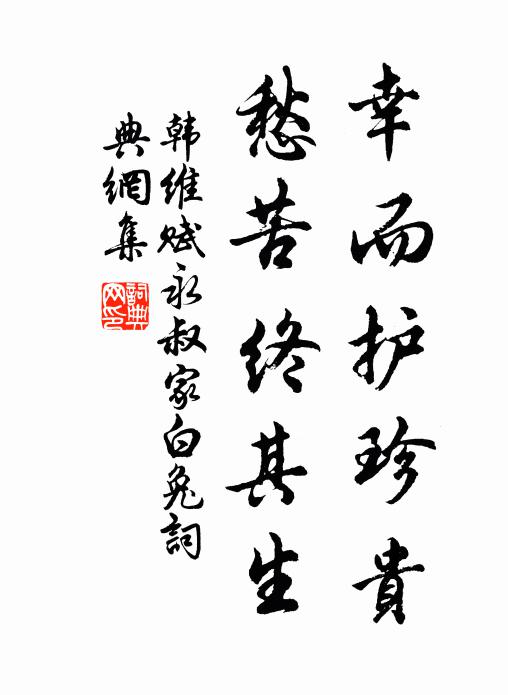 幸而护珍貴
愁苦终其生
韩维赋永叔家白兔詞
典網集
詞典网印